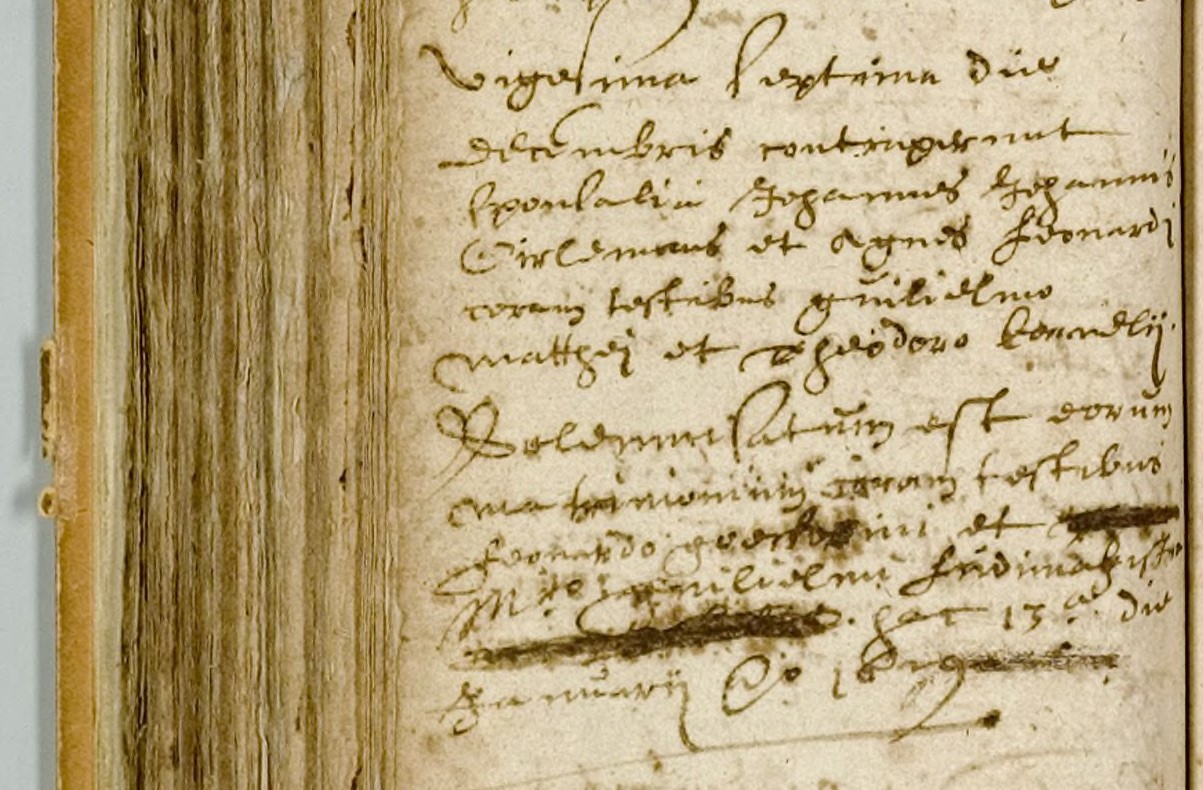 vigesima septima die
decembris contigerunt
sponsalia Johannes Johannis
et Agnes Leonardi
coram testibus guilielmo
matthei et Theodoro
Solemnisatum est eorum
matrimonium coram testibus
Leonardo et
Mro guilielmo Ludimagistro
hac 13a die
Januarij Ao